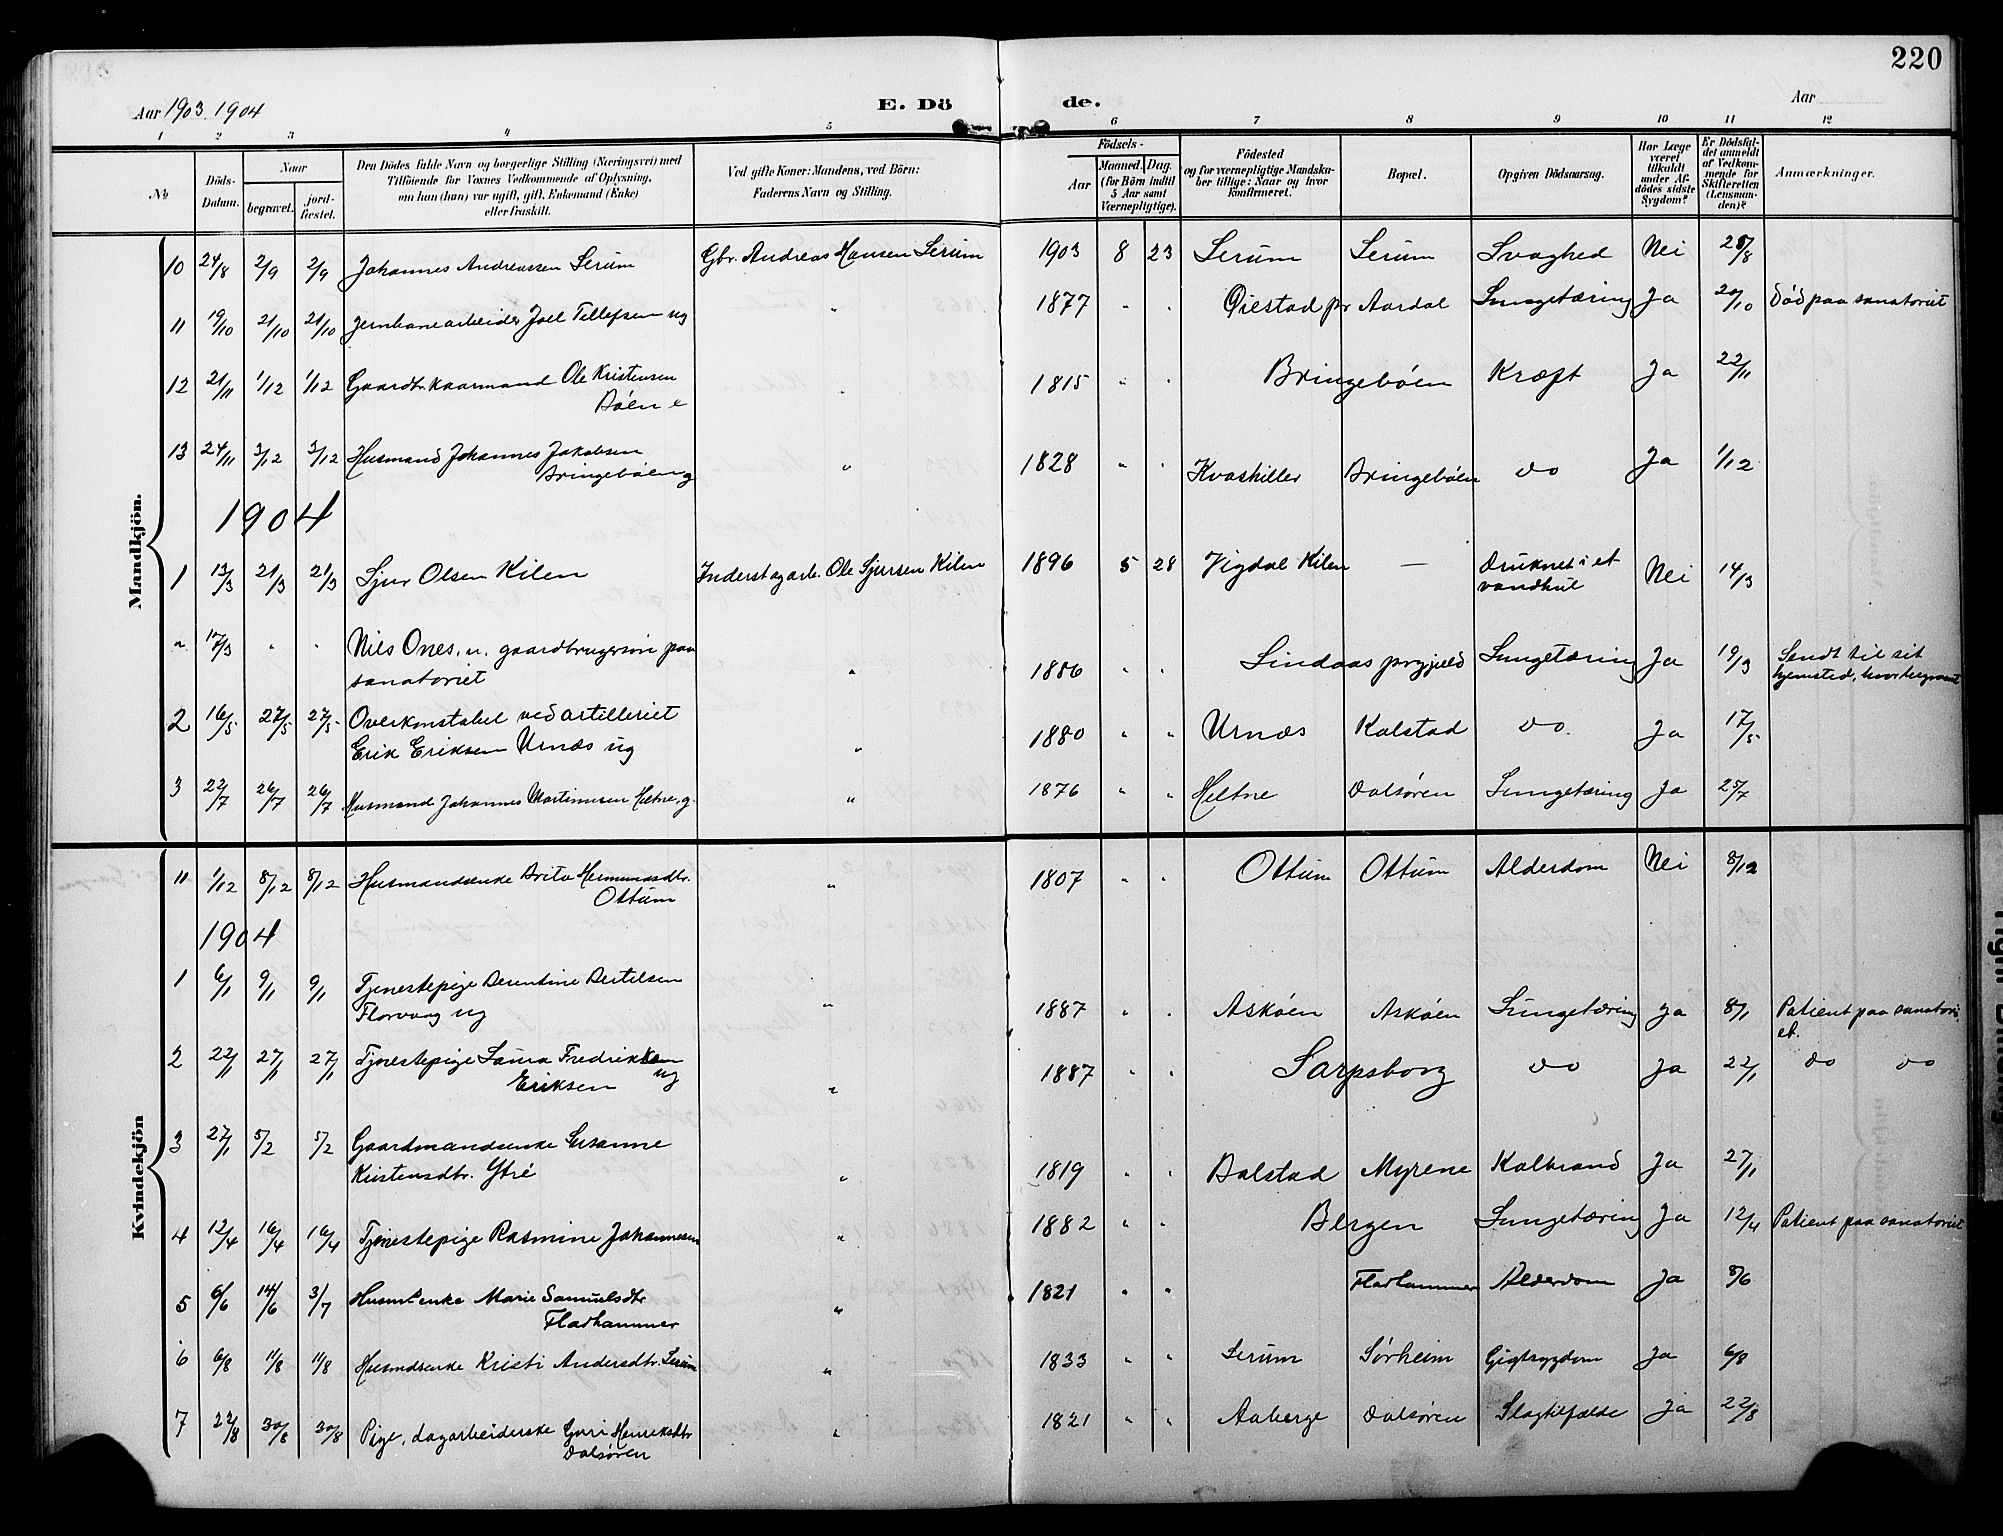 220
Aar 1903. 1904
E. Dö de.
Aar
1 2 3 4 5 6 7 8 9 10 11 12
No
Döds-Datum.
Naar
begravet.
jord-fæstet.
Den Dödes fulde Navn og borgerlige Stilling (Næringsvei) med
Tilföiende for Voxnes Vedkommende af Oplysning,
om han (hun) var ugift, gift, Enkemand (Enke)
eller fraskilt.
Ved gifte Koner: Mandens, ved Börn:
Faderens Navn og Stilling.
Födsels-
Aar
Maaned. Dag.
(for Börn indtil
5 Aar samt
Værnepligtige).
Födested
og for værnepligtige Mandska-
ber tillige: Naar og hvor
konfirmeret.
Bopæl.
Opgiven Dödsaarsag.
Har Læge
været
tilkaldt
under Af-
dödes sidste
Sygdom?
Er Dödsfal-
det anmeldt
af Vedkom-
mende for
Skifteretten
(Lensman-
den)?
Anmærkninger.
Mandkjön.
10 24/8 2/9 2/9 Johannes Andreassen Serum Gbr. Andreas Hansen Serum 1903 8 23 Serum Serum Svaghed Nei 25/8
11 19/10 21/10 21/10 Jernbanearbeider Joel Tellefsen ug " 1877 " " Øiestad pr Aardal Lungetæring Ja 20/10 Død paa sanatoriet
12 21/11 1/12 1/12 Gaardbr.kaarmand Ole Kristensen
Bøen e " 1815 " " Bringebøen Kræft Ja 22/11
13 24/11 3/12 3/12 Husmand Johannes Jakobsen
Bringebøen g " 1828 " " Kvaskiller Bringebøen do Ja 1/12
1904
1 13/3 21/3 21/3 Sjur Olsen Kilen Inderstagarb. Ole Sjursen Kilen 1896 5 28 Vigdal Kilen — Druknet i et
vandhul Nei 14/3
" 17/3 " " Nils Ones, u. gaardbrugersøn paa
sanatoriet " 1886 " " Lindaas prgjeld Lungetæring Ja 19/3 Sendt til sit
hjemsted, hvor begravet
2 16/5 27/5 27/5 Overkonstabel ved artilleriet
Erik Eriksen Urnæs ug " 1880 " " Urnæs Kalstad do. Ja 17/5
3 22/7 26/7 26/7 Husmand Johannes Martinusen Heltne, g. " 1876 " " Heltne Dalsøren Lungetæring Ja 25/7
Kvindekjön
11 1/12 8/12 8/12 Husmandsenke Brita Hermundsdtr.
Ottum " 1807 " " Ottum Ottum Alderdom Nei 8/12
1904
1 6/1 9/1 9/1 Tjenestepige Berentine Bertelsen
Florvaag ug " 1887 " " Askøen Askøen Lungetæring Ja 8/1 Patient paa sanatori
et.
2 22/1 27/1 27/1 Tjenestepige Laura Fredrikken
Eriksen ug " 1887 " " Sarpsborg do Ja 22/1 do do
3 27/1 5/2 5/2 Gaardmandsenke Susanne
Kristensdtr. Ytré " 1819 " " Bolstad Myrene Kolbrand Ja 27/1
4 12/4 16/4 16/4 Tjenestepige Rasmine Johannesen " 1882 " " Bergen Lungetæring Ja 12/4 Patient paa sanatoriet
5 6/6 14/6 3/7 Husmdenke Marie Samuelsdtr
Fladhammer " 1821 " " Fladhammer Alderdom Ja 8/6
6 6/8 11/8 11/8 Husmdsenke Kristi Andersdtr. Serum " 1833 " " Serum Sørheim Gigtsygdom Ja 6/8
7 22/8 30/8 30/8 Pige, dagarbeiderske Guri Henriksdtr
Dalsøren " 1821 " " Aaberge Dalsøren Slagtilfælde Ja 22/8